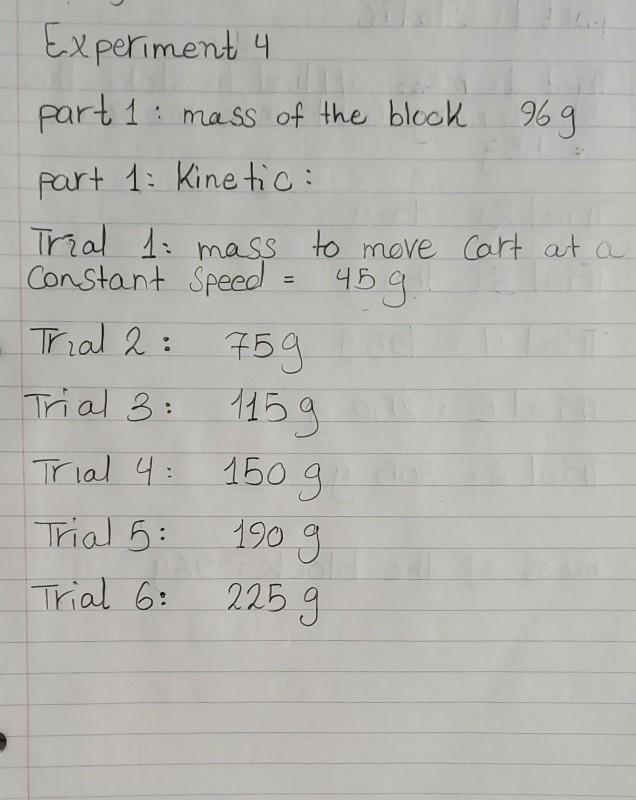 Experiment 4
part 1: mass of the block 96 g
part 1: Kinetic:
Trial 1: mass to move Cart at a
Constant Speed = 45 g
Trial 2: 75 g
Trial 3: 115 g
Trial 4: 150 g
Trial 5: 190 g
Trial 6: 225 g